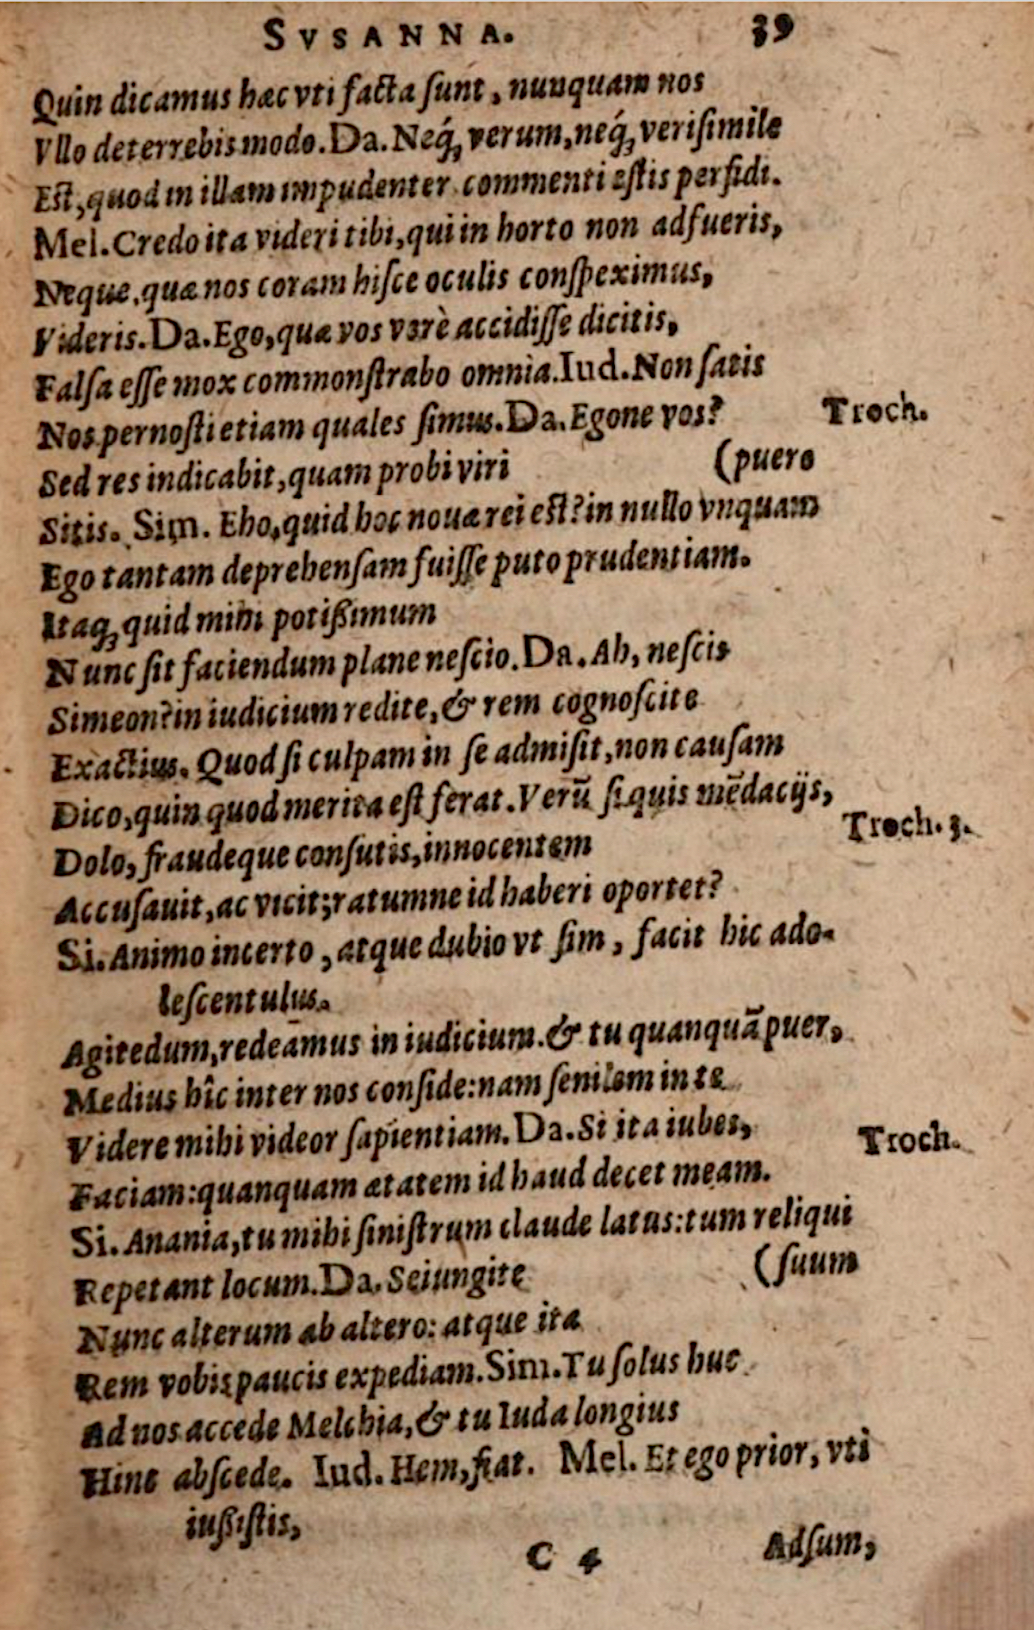 SVSANNA. 39
Quin dicamus hæc vti facta ſunt, nunquam nos
Vllo deterrebis modo. Da. Neq́ꝫ verum, neq́ꝫ veriſimile
Eſt, quod in illam impudenter commenti eſtis perfidi.
Mel. Credo ita videri tibi, qui in horto non adfueris,
Neque, quæ nos coram hiſce oculis conſpeximus,
Videris. Da. Ego, quæ vos verè accidiſſe dicitis,
Falſa eſſe mox commonſtrabo omnia. Iud. Non ſatis
Nos pernoſti etiam quales ſimus. Da. Egone vos? Troch.
Sed res indicabit, quam probi viri (puero
Sitis. Sim. Eho, quid hoc nouæ rei eſt? in nullo vnquam
Ego tantam deprehenſam fuiſſe puto prudentiam.
Itaqꝫ quid mihi potißimum
Nunc ſit faciendum plane neſcio. Da. Ah, neſcis
Simeon? in iudicium redite, & rem cognoſcite
Exactius. Quod ſi culpam in ſe admiſit, non cauſam
Dico, quin quod merita eſt ferat. Verū ſi quis mēdacijs,
Dolo, fraudeque conſutis, innocentem Troch. 3.
Accuſauit, ac vicit; ratumne id haberi oportet?
Si. Animo incerto, atque dubio vt ſim, facit hic ado-
leſcentulus.
Agitedum, redeamus in iudicium. & tu quanquā puer,
Medius hîc inter nos conſide: nam ſenilem in te
Videre mihi videor ſapientiam. Da. Si ita iubes, Troch.
Faciam: quanquam ætatem id haud decet meam.
Si. Anania, tu mihi ſiniſtrum claude latus: tum reliqui
Repetant locum. Da. Seiungite (ſuum
Nunc alterum ab altero: atque ita
Rem vobis paucis expediam. Sim. Tu ſolus huc
Ad nos accede Melchia, & tu Iuda longius
Hinc abſcede. Iud. Hem, fiat. Mel. Et ego prior, vti
iußiſtis,
C 4 Adſum,